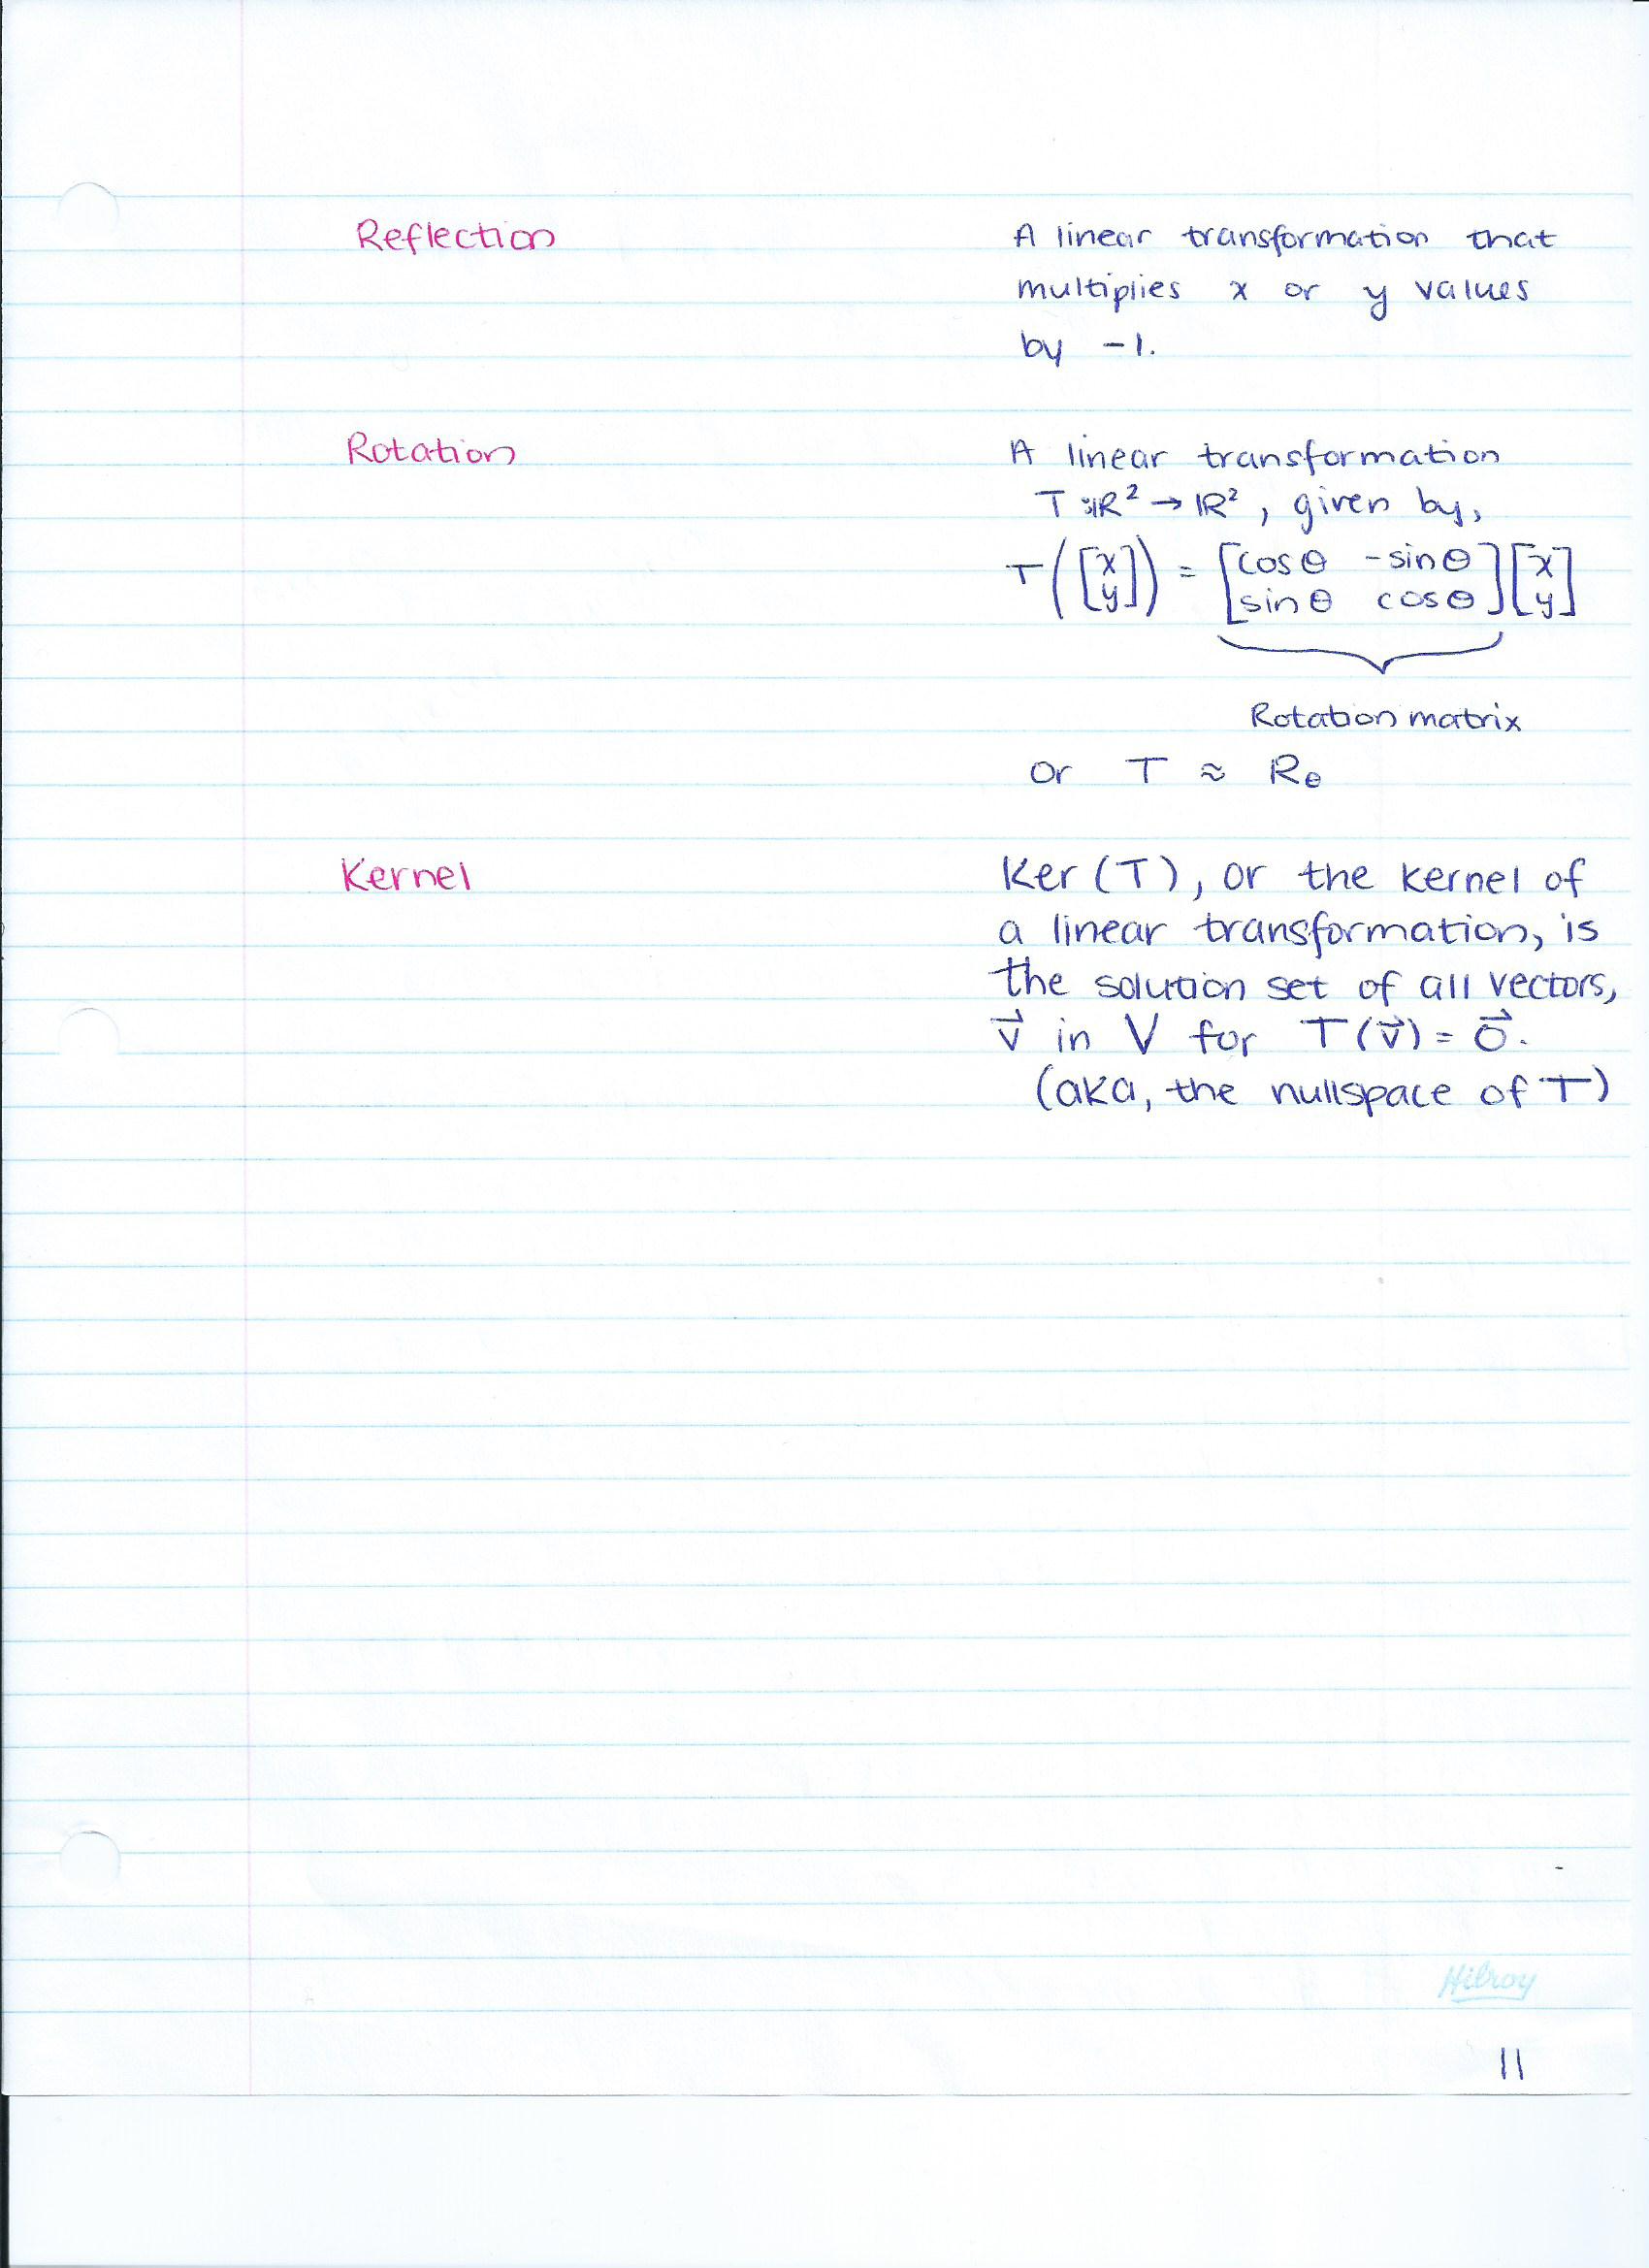 Reflection
A linear transformation that
multiplies x or y values
by -1.
Rotation
A linear transformation
T:ℝ² → ℝ², given by,
T([x y]) = [cosθ -sinθ sinθ cosθ][x y]
Rotation matrix
or T ≈ R_θ
Kernel
Ker (T), or the kernel of
a linear transformation, is
the solution set of all vectors,
v⃗ in V for T(v⃗) = 0⃗.
(aka, the nullspace of T)
Hilroy
11